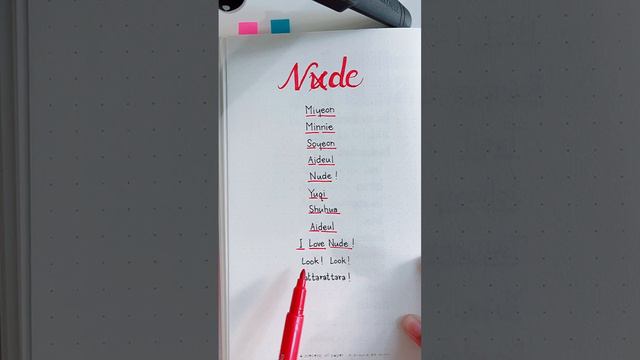 Nxde
Miyeon
Minnie
Soyeon
Aideul
Nude !
Yuqi
Shuhua
Aideul
I Love Nude !
Look ! Look !
attarattara !